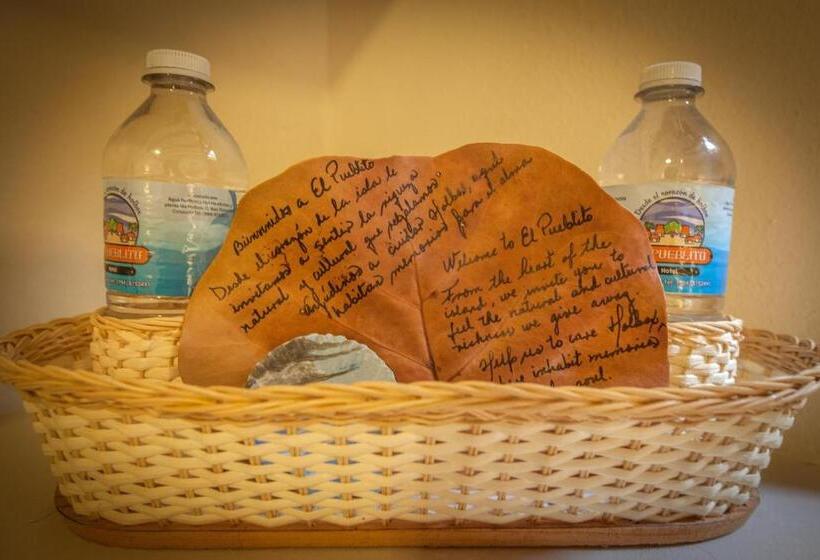 Bienvenidos a El Pueblito
Desde el corazón de la isla, le
invitamos a sentir la riqueza
natural y cultural que regalamos.
Ayúdenos a cuidar Holbox, aquí
habitan memorias para el alma
Welcome to El Pueblito
From the heart of the
island, we invite you to
feel the natural and cultural
richness we give away.
Help us to care Holbox,
inhabit memories
soul.
Desde el corazón de holbox
PUEBLITO
Hotel
PUEBLITO
Hotel